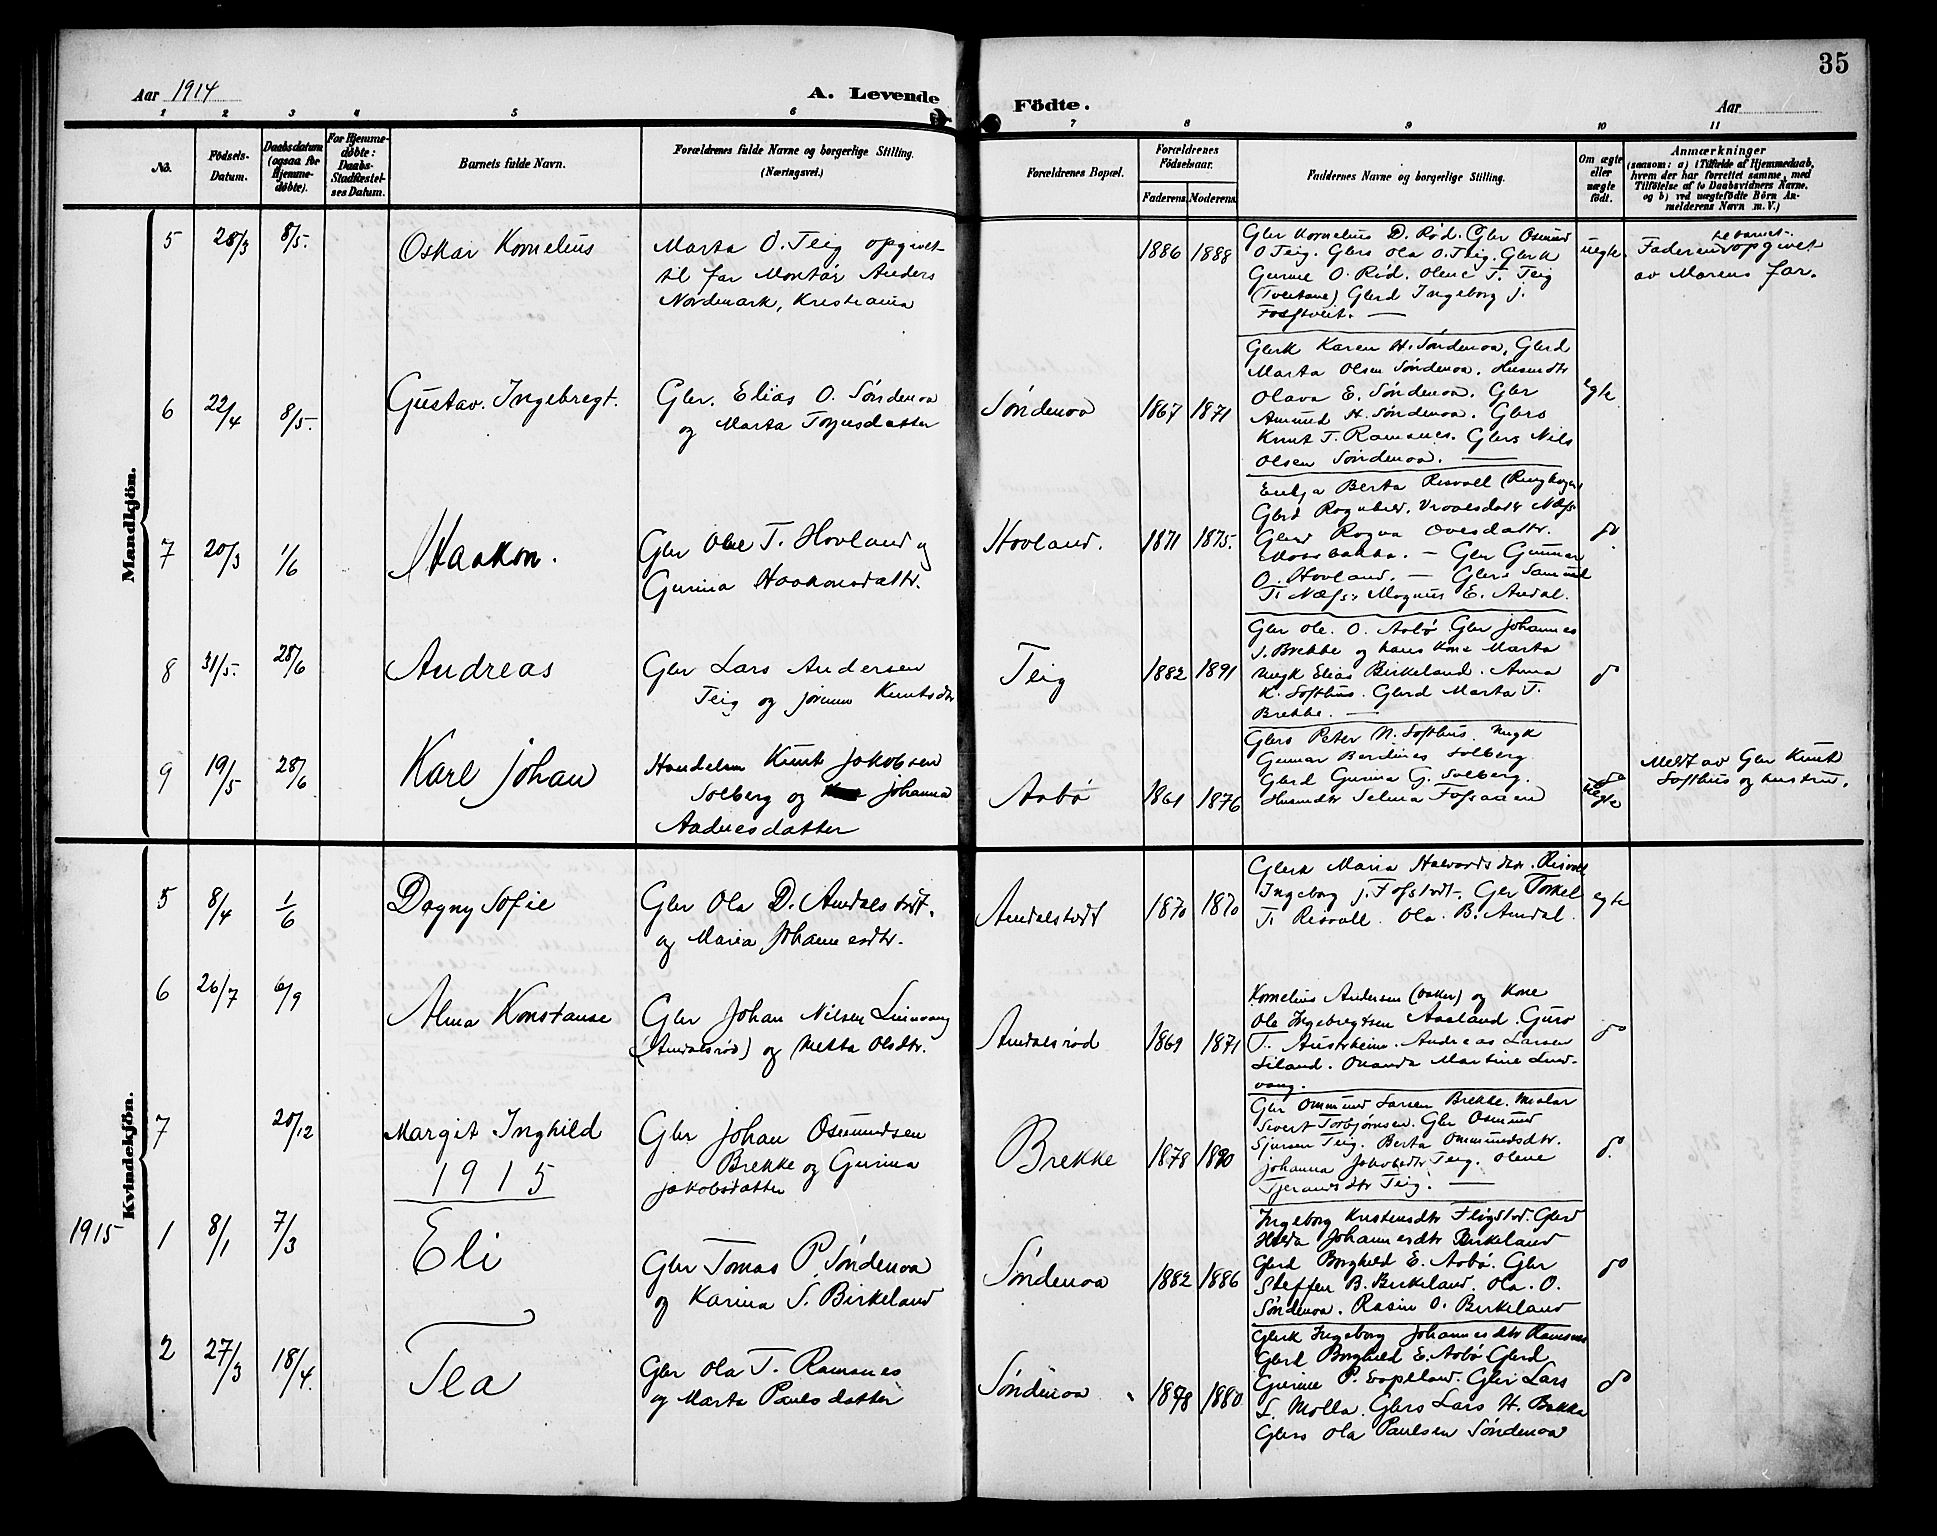 35
Aar 1914
A. Levende
Födte.
Aar
1 2 3 4 5 6 7 8 9 10 11
No.
Födsels-Datum.
Daabsdatum (ogsaa for Hjemme-døbte).
For Hjemme-døbte: Daabs-Stadfæstel-ses Datum.
Barnets fulde Navn.
Forældrenes fulde Navne og borgerlige Stilling.
(Næringsvei.)
Forældrenes Bopæl.
Forældrenes Födselsaar.
Faderens. Moderens.
Faddernes Navne og borgerlige Stilling.
Om ægte eller uægte født.
Anmærkninger
(saasom: a) i Tilfælde af Hjemmedaab,
hvem der har forrettet samme, med
Tilföielse af to Daabsvidners Navne,
og b) ved uægtefödte Börn An-
melderens Navn m. V.)
Mandkjön.
5 28/3 8/5. Oskar Kornelius
Marta O. Teig opgivet
til far Montør Anders
Nordmark, Kristiania
1886 1888
Gbr Kornelius D. Rød. Gbr Osmund
O Teig. Gbrs Ola O. Teig. Gbrk
Gurine O. Rød. Olene T. Teig
(Tveitane) Gbrd Ingeborg J.
Fosstveit. —
uegte.
Faderen til barnet opgivet
av Morens far.
6 22/4 8/5. Gustav. Ingebregt.
Gbr. Elias O. Söndenaa
og Marta Tønnesdatter
Söndenaa
1867 1871
Gbrk Karen H. Söndenaa, Gbrd
Marta Olsen Söndenaa. Husmdtr
Olava E. Söndenaa. Gbr
Amund H. Söndenaa. Gbrs
Knut T. Ramsnes. Gbrs Nils
Olsen Söndenaa. —
egte
7 20/3 1/6 Haakon.
Gbr Ole T. Hovland og
Gurina Haakonsdattr.
Hovland.
1871 1875.
Enkja Berta Risvoll
Gbrd Ragnhild Næss
Gbrd Ragna Ovesdattr.
— Gbr Gunnar
O. Hovland. — Gbrs Samuel
T. Næss, Magnus E. Audal.
do
8 31/5. 28/6 Andreas
Gbr Lars Andersen
Teig og Jorunn Knutsdtr
Teig
1882 1891
Gbr Ole. O. Aabø Gbr Johannes
J. Brekke og hans Kone Marta
Ungk Elias Birkeland. Anna
K. Softhus. Gbrd Marta T.
Brekke. —
do
9 19/5 28/6 Karl Johan
Handelsm Knut Jakobsen
Solberg og Johanna
Andreasdatter
Aabø
1861 1876
Gbrs Peter N. Softhus. Ungk
Gunnar Berdines Solberg
Gbrd Gurina G. Solberg.
Husmdtr Selma Fossaaen
uegte
Meldt av Gbr Knut
Softhus og hustru.
Kvindekjön.
5 8/4 1/6 Dagny Sofie
Gbr Ola D. Amdalstødt.
og Maria Johannesdtr.
Amdalstødt
1870 1870
Gbrk Maria Halvardsdtr. Risvoll
Ingeborg J. Fosstødt. Gbr Torkel
T. Risvoll. Ola. B. Amdal.
egte
6 26/7 6/9 Alma Konstanse
Gbr Johan Nilsen Lindvang
(Amdalsrød) og Metta Olsdtr.
Amdalsrød
1869 1871
Kornelius Andersen (Bakke) og Kone
Ole Ingebregtsen Aasland. Guro
T. Austrheim. Andreas Larsen
Liland. Amanda Martine Lind-
vang.
do
7 20/12 Margit Inghild
Gbr Johan Osmundsen
Brekke og Gurina
Jakobsdatter
Brekke
1878 1890
Gbr Ommund Larsen Brekke. Malar
Sivert Torbjørnsen. Gbr Osmund
Sjursen Teig. Berta Ommundsdtr.
Johanna Jakobsdtr Teig. Olene
Tjerandsdtr Teig. —
do.
1915
1915 1 8/1 7/3 Eli
Gbr Tomas P. Söndenaa
og Karina S. Birkeland
Söndenaa
1882 1886
Ingeborg Kristensdtr Fligstød. Gbrd
Hilda Johannesdtr Birkeland
Gbrd Borghild E. Aabø. Gbr
Steffen B. Birkeland. Ola. O.
Söndenaa. Rasm O. Birkeland
do
2 27/3 18/4. Tea
Gbr Ola T. Ramsnes
og Marta Paulsdatter
Söndenaa
1878 1880
Gbrk Ingeborg Johannesdtr Ramsnes
Gbrd Borghild E. Aabø Gbrd
Gurine P. Gbr Lars
L. Molla. Gbrs Lars H. Bakka
Gbrs Ola Paulsen Söndenaa
do